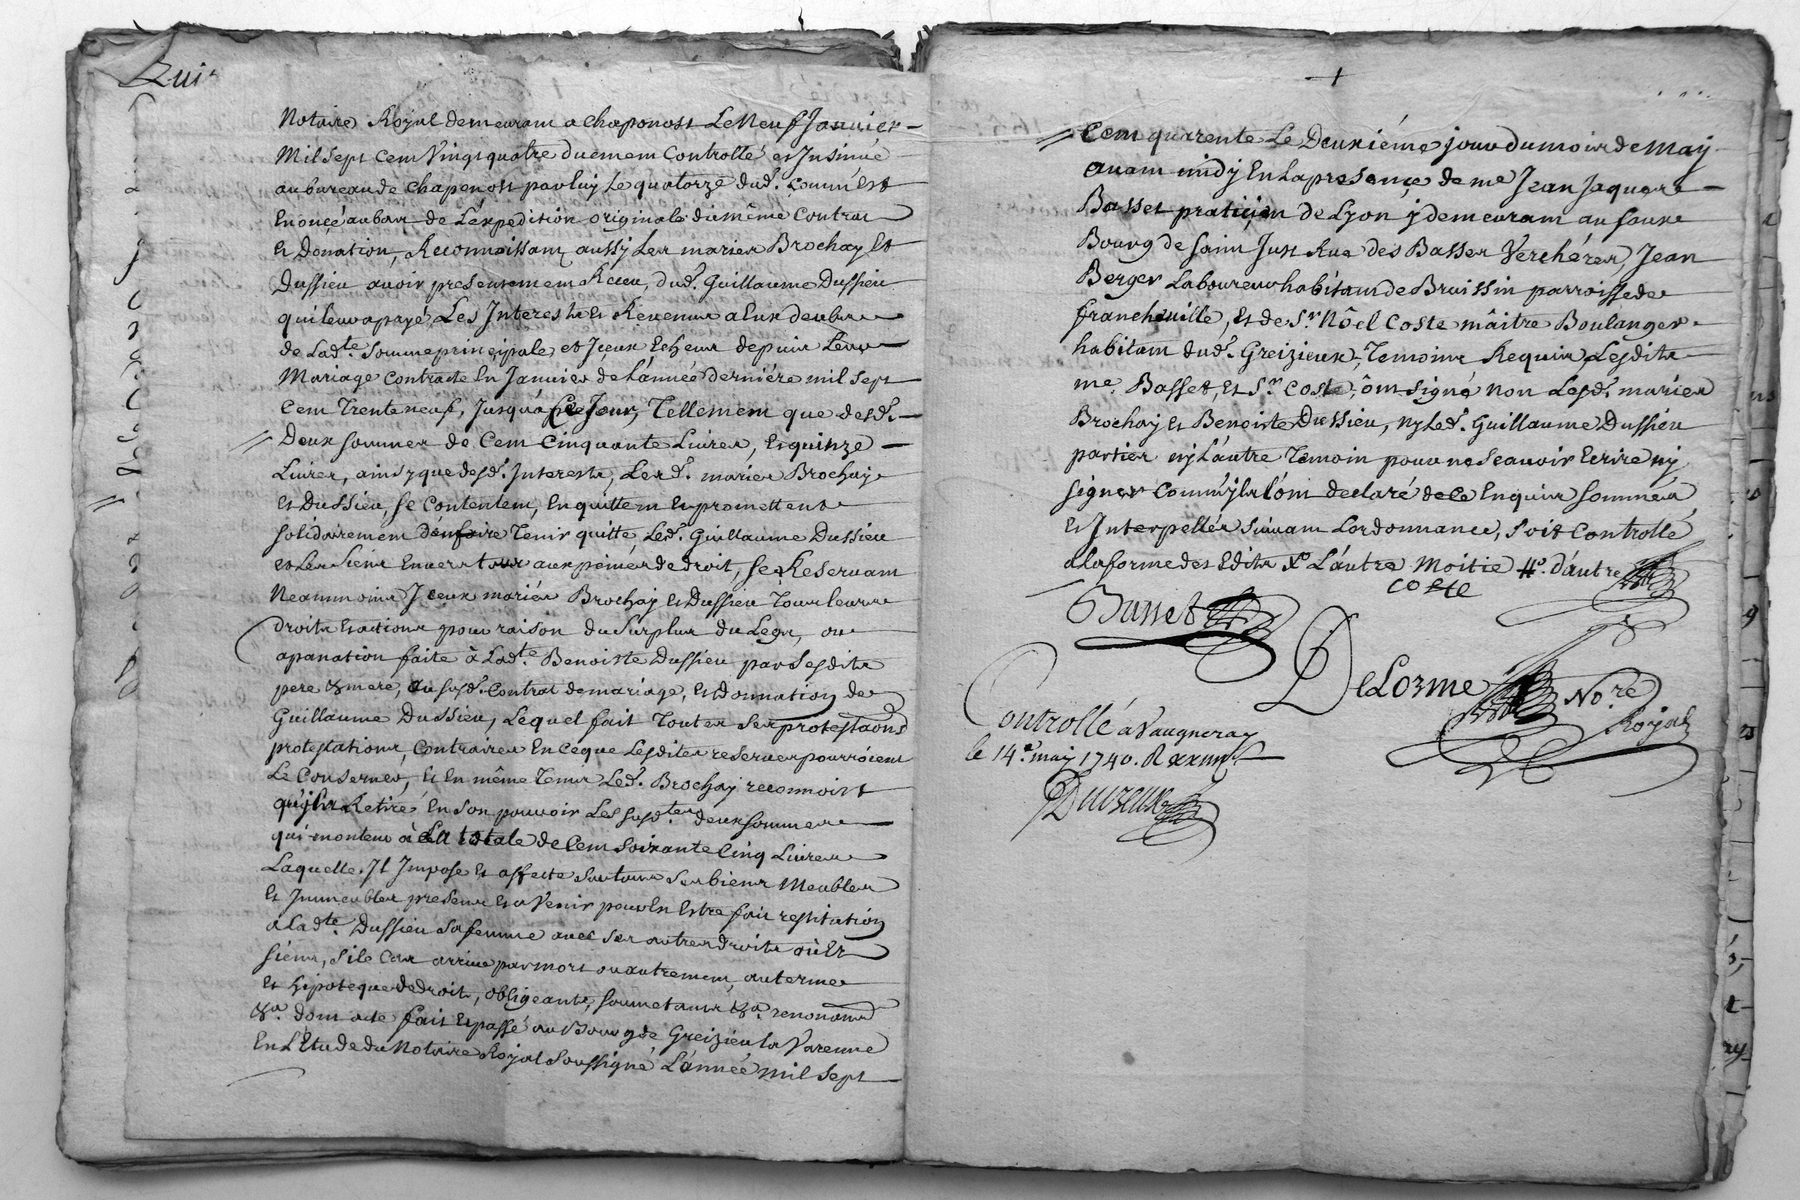 Quit
Notaire Royal demeurant a chaponost Le Neuf Janvier
Mil sept Cent Vingt quatre duement Controllé et Insinué
au bureau de chaponost par luy le quatorze dud. Comm'Est
Enoncé au bas de L'éxpedition originale du même Contrat
Et Donation, Reconnoissant aussy Les mariés Brochay Et
Dussieu avoir presentement Reçeu, dud. Guillaume Dussieu
qui leur a payé, Les Interests Et Revenus a Eux deubs
de Lad.te Somme principale, et Iceux Echeus depuis Leur
Mariage Contracté En Janvier de L'année derniére mil sept
Cent Trente neuf, Jusqu'a Ce Jour, Tellement que desd.
Deux sommes de Cent Cinquante Livres, Et quinze
Livres, ainsy que desd. Interests, Les d. mariés Brochay
Et Dussieu, se Contentent, En quittent Et promettent
solidairement d'en faire Tenir quitte, Led. Guillaume Dussieu
et Les siens Envers tous aux peines de droit, se Reservant
Neammoins Iceux mariés Brochay Et Dussieu Tous leurs
droits Et actions pour raison du Surplus du Legs, ou
apanation faite à Lad.te Benoiste Dussieu par Sesdits
pere & mere, au susd. Contrat de mariage, Et donnation de
Guillaume Dussieu, Lequel fait Toutes Ses protestaons
protestations Contraires En Ce que Lesdites reserves pourroient
Le Conserner, Et En même Tems Led. Brochay reconnoist
qu'il a Retiré En Son pouvoir Les susd.tes deux sommes
qui montent à La totale de Cent Soixante Cinq Livres
Laquelle Il Impose Et affecte Sur tous Ses biens Meubles
Et Immeubles presens Et a Venir pour En Estre fait restitution
a Lad.te Dussieu Sa femme avec Ses autres Droits ou Et
siens, si le Cas arrive par mort ou autrement, au terme
Et hipoteque de droit, obligeants, soumettants &a. renonceant
&a. dont acte fait Et passé au Bourg de Greizieu la Varenne
En L'Etude du Notaire Royal Soussigné L'année mil Sept
Cent quarente Le Deuxiéme jour du mois de May
avant midy En La presençe de me Jean Jaques
Basset pratiçien de Lyon y demeurant au faux
Bourg de saint Just Rue des Basses Verchéres, Jean
Berger Laboureur habitant de Bruissin parroisse de
francheville, Et de Sr. Nôel Coste mâitre Boulanger
habitant dud. Greizieux, Temoins Requis Lesdits
me. Basset, Et Sr. Coste, ont signé non Lesd. mariés
Brochay Et Benoiste Dussieu, ny Led. Guillaume Dussieu
parties ny L'autre Temoin pour ne Scavoir Ecrire ny
signer Comm'ils l'ont declaré de Ce Enquis sommés
Et Interpellés Suivant Lordonnance, Soit Controllé
a La forme des Edits Xo L'autre Moitie #o. d'autre
Basset
coste
DeLorme No.re
Royal
Controllé à Vaugneray
le 14.e may 1740. R xxiiij s
Duvreux